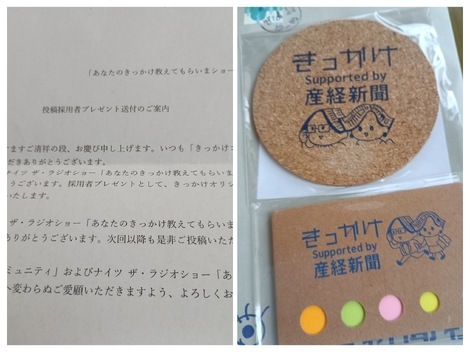 「あなたのきっかけ教えてもらいまショー
投稿採用者プレゼント送付のご案内
ますご清祥の段、お慶び申し上げます。いつも「きっかけコ
だきありがとうございます。
ナイツ ザ・ラジオショー「あなたのきっかけ教えてもらいま
うございます。採用者プレゼントとして、きっかけオリシ
いたします。
ザ・ラジオショー「あなたのきっかけ教えてもらいま
ありがとうございます。次回以降も是非ご投稿いただ
ミュニティ」およびナイツ ザ・ラジオショー「あ
へ変わらぬご愛顧いただきますよう、よろしくお
きっかけ
Supported by
産経新聞
きっかけ
Supported by
産経新聞